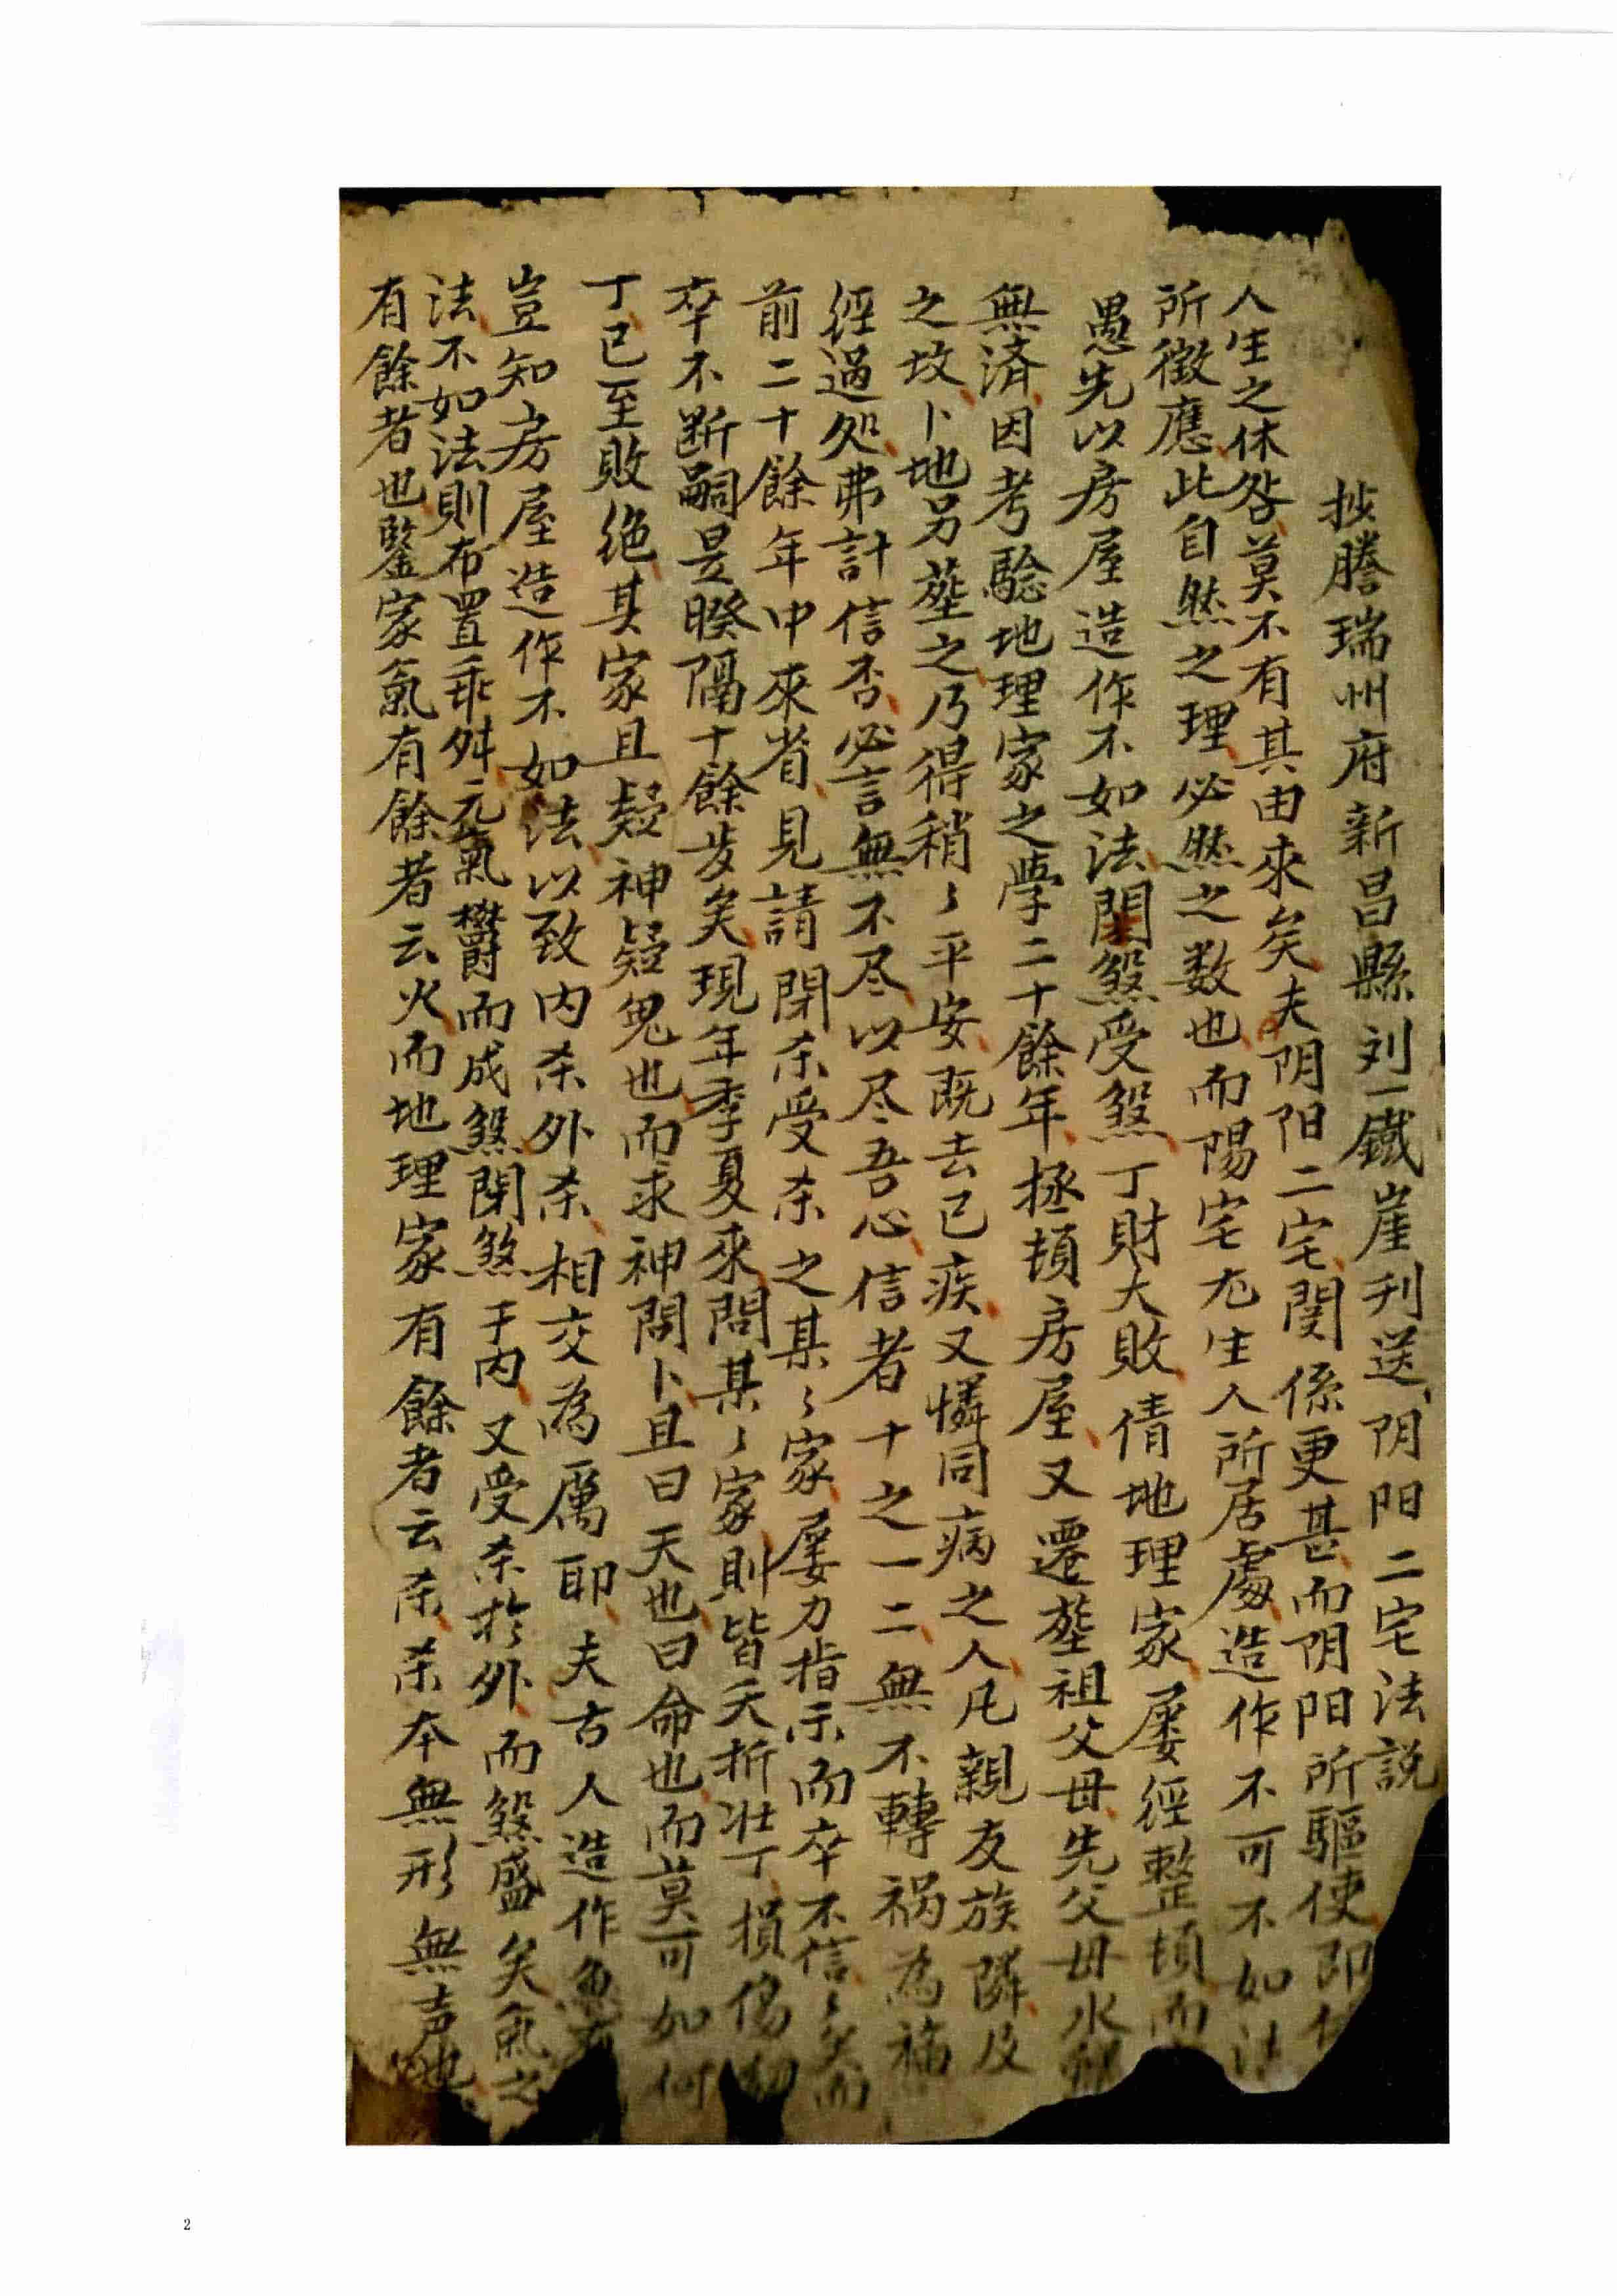 抄謄瑞州府新昌縣刘一鐵崖刋送阴阳二宅法説
人生之休咎莫不有其由來矣夫阴阳二宅関係更甚而阴阳所驅使即
所徵應此自然之理必然之数也而陽宅尤生人所居處造作不可不如法
愚先以房屋造作不如法閉煞受煞丁財大敗倩地理家屡經整頓而
無済因考騐地理家之學二十餘年拯頓房屋又遷塟祖父母先父母水
之坟卜地另塟之乃得稍〻平安既去已疾又憐同病之人凡親友族隣及
經過处弗計信否必言無不尽以尽吾心信者十之一二無不轉禍為福
前二十餘年中來省見請閉杀受杀之某〻家屡力指示而卒不信〻矣而
卒不断嗣是暌隔十餘歲矣現年季夏來問某〻家則皆夭折壮丁損傷
丁已至敗绝其家且疑神疑鬼也而求神問卜且曰天也曰命也而莫可如何
豈知房屋造作不如法以致内杀外杀相交為厲耶夫古人造作
法不如法則布置乖舛元氣欝而成煞閉煞于内又受杀於外而煞盛矣氣之
有餘者也鑒家氣有餘者云火而地理家有餘者云杀杀本無形無声也
2